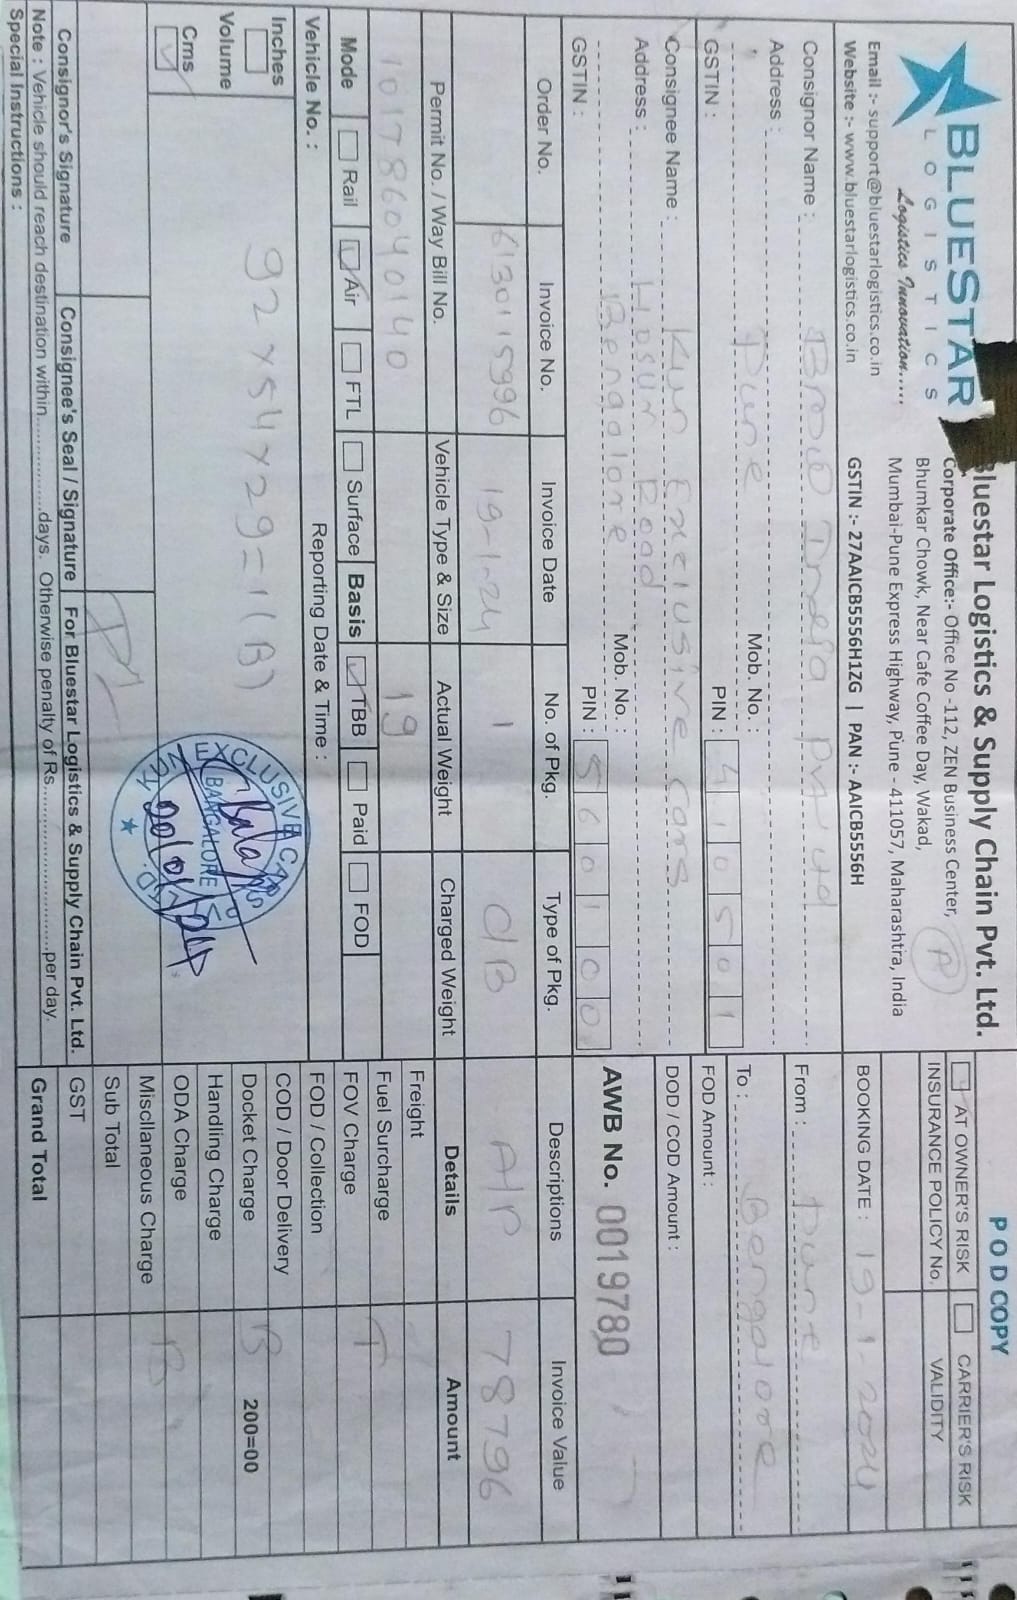 BLUESTAR
LOGISTICS
Logistics Innovation.....
Email :- support@bluestarlogistics.co.in
Website :- www.bluestarlogistics.co.in
Bluestar Logistics & Supply Chain Pvt. Ltd.
Corporate Office:- Office No -112, ZEN Business Center,
Bhumkar Chowk, Near Cafe Coffee Day, Wakad,
Mumbai-Pune Express Highway, Pune - 411057, Maharashtra, India
GSTIN :- 27AAICB5556H1ZG | PAN :- AAICB5556H
A
POD COPY
AT OWNER'S RISK CARRIER'S RISK
INSURANCE POLICY No. VALIDITY
BOOKING DATE : 19-1-2024
Consignor Name : India Pvt Ltd
Address :
Pune Mob. No. :
GSTIN : PIN : 410501
From : Pune
To : Bengalore
FOD Amount :
DOD / COD Amount :
Consignee Name : Kun Exclusive Cars
Address : Hosur Road
Bengalore Mob. No. :
GSTIN : PIN : 560100
AWB No. 0019780
Order No. Invoice No. Invoice Date No. of Pkg. Type of Pkg. Descriptions Invoice Value
6130115996 19-1-24 1 C/B A/P 78796
Permit No. / Way Bill No. Vehicle Type & Size Actual Weight Charged Weight
101786040140 19
Mode Rail Air FTL Surface Basis TBB Paid FOD
Vehicle No. : Reporting Date & Time :
Inches
Volume
Cms
92x54x29=1(B)
KUN EXCLUSIVE CARS PVT. LTD.
BANGALORE
Balaji
20/01/24
Details Amount
Freight
Fuel Surcharge
T
FOV Charge
FOD / Collection
COD / Door Delivery
B
Docket Charge 200=00
Handling Charge
ODA Charge
B
Miscllaneous Charge
Sub Total
GST
Grand Total
Consignor's Signature Consignee's Seal / Signature For Bluestar Logistics & Supply Chain Pvt. Ltd.
Note : Vehicle should reach destination within.................days. Otherwise penalty of Rs..............................per day.
Special Instructions :